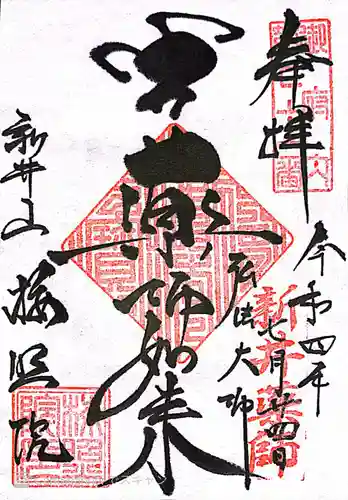 奉拝
御府内
令和四年
七月廿四日
新井薬師
弘法大師
薬師如来
新井山
梅照院